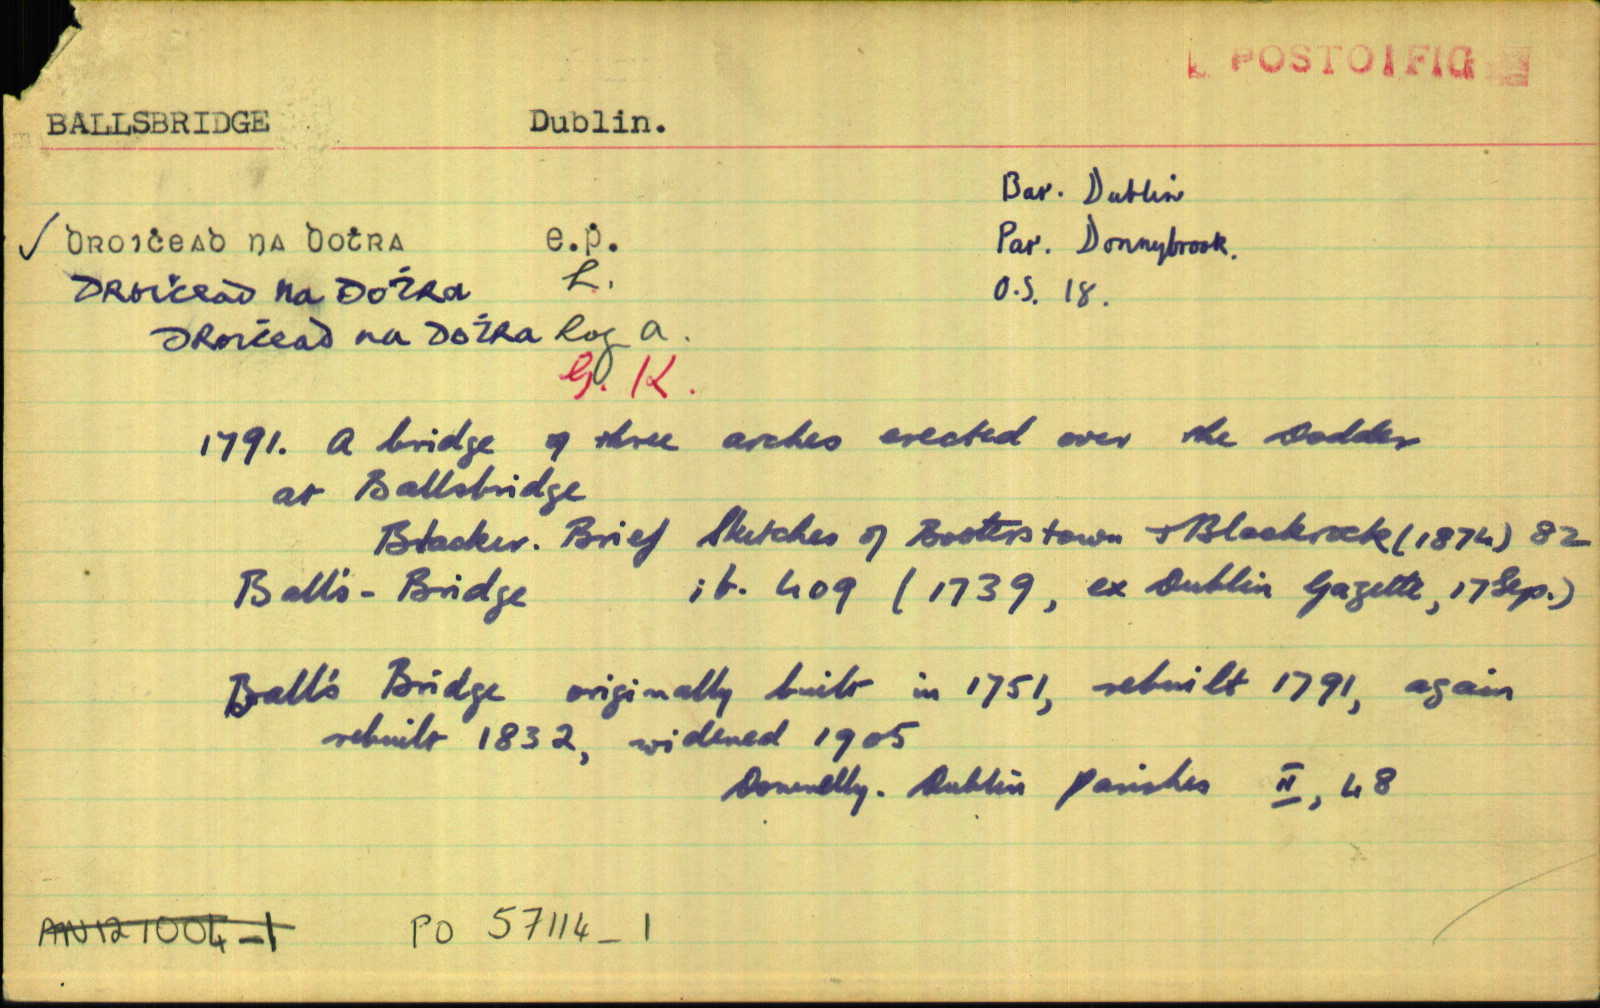 POSTOIFIG
BALLSBRIDGE Dublin.
Bar. Dublin
✓ DROIĊEAD NA DOṪRA e.p.
Par. Donnybrook.
DROIĊEAD na DOṪRA L.
O.S. 18.
DROIĊEAD na DOṪRA Log a.
G. K.
1791. A bridge of three arches erected over the Dodder
at Ballsbridge
Blacker. Brief Sketches of Booterstown + Blackrock (1874) 82
Ball's-Bridge ib. 409 (1739, ex Dublin Gazette, 17 Sep.)
Ball's Bridge originally built in 1751, rebuilt 1791, again
rebuilt 1832, widened 1905
Donnelly. Dublin Parishes II, 48
AN121004-1 PO 57114-1